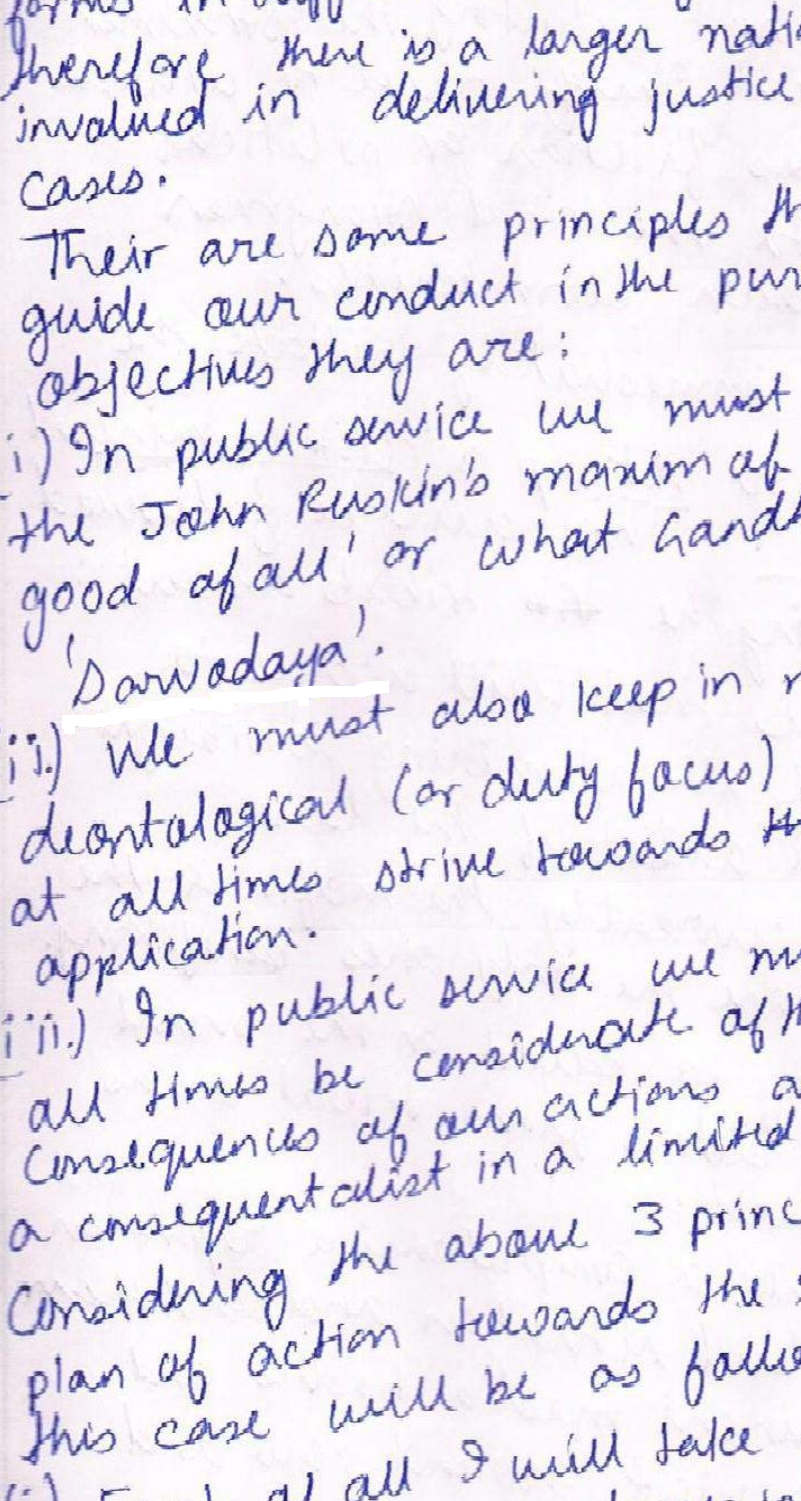 therefore there is a larger nati
involved in delivering justice
cases.
Their are some principles th
guide our conduct in the pur
objectives they are:
i) In public service we must
the John Ruskin's maxim of
good of all' or what Gandh
'Sarvodaya'.
ii.) We must also keep in
deontological (or duty focus)
at all times strive towards th
application.
iii.) In public service we mu
all times be considerate of th
consequences of our actions a
a consequentalist in a limited
Considering the above 3 princ
plan of action towards the
this case will be as follo
of all I will take